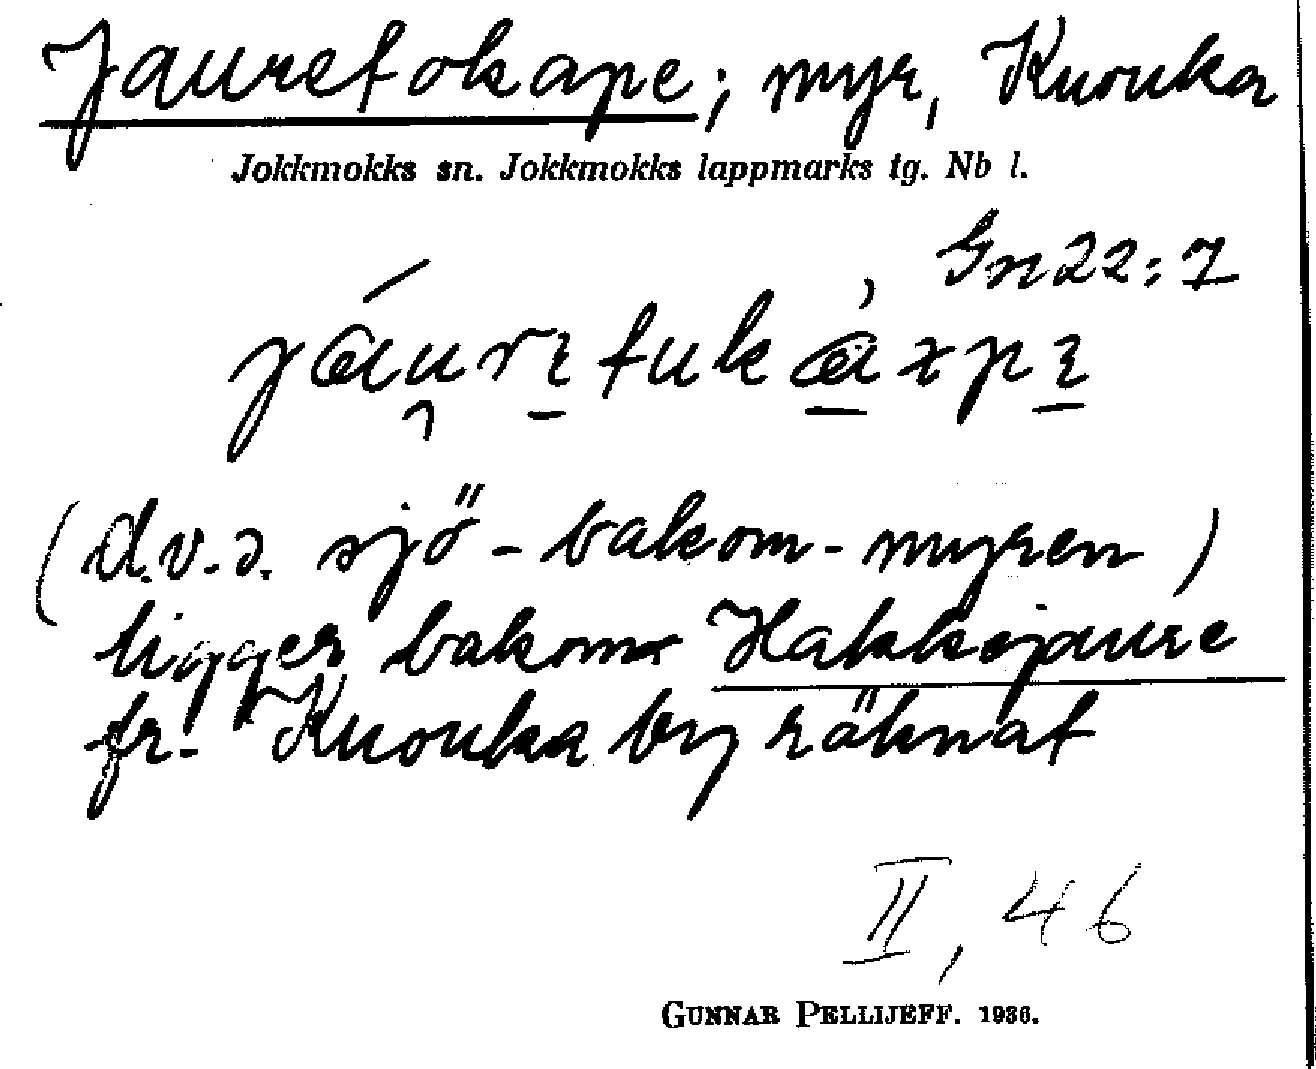 Jauretokape; myr, Knouka
Jokkmokks sn. Jokkmokks lappmarks tg. Nb l.
Gn 22:7
(d.v.s. sjö-bakom-myren)
ligger bakom Hakkojaure
fr. Knouka by räknat
II, 46
GUNNAR PELLIJEFF. 1936.